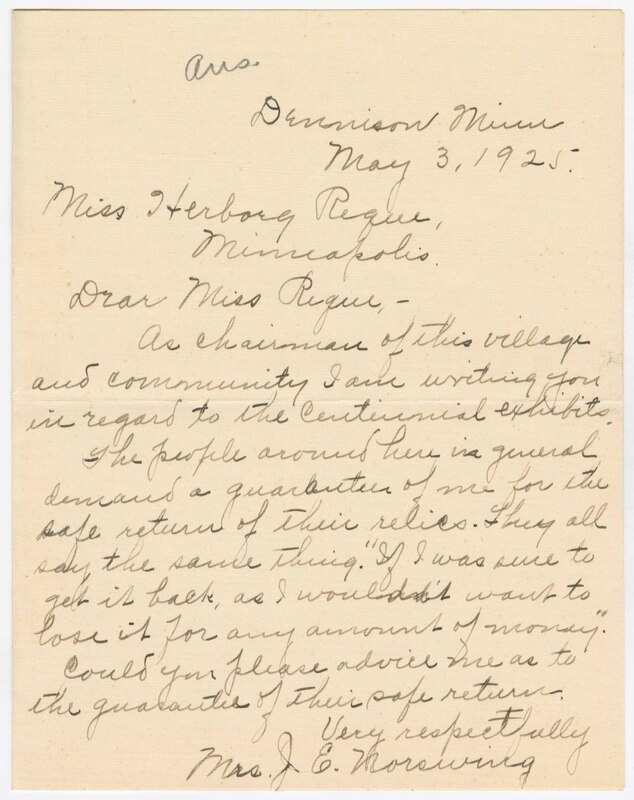 Ans.
Dennison Minn
May 3, 1925.
Miss Herborg Reque,
Minneapolis.
Dear Miss Reque,-
As chairman of this village
and community I am writing you
in regard to the Centennial exhibits.
The people around here in general
demand a guarantee of me for the
safe return of their relics. They all
say the same thing. "If I was sure to
get it back, as I wouldn't want to
lose it for any amount of money".
Could you please advice me as to
the guarantee of their safe return.
Very respectfully
Mrs. J. E. Morswing